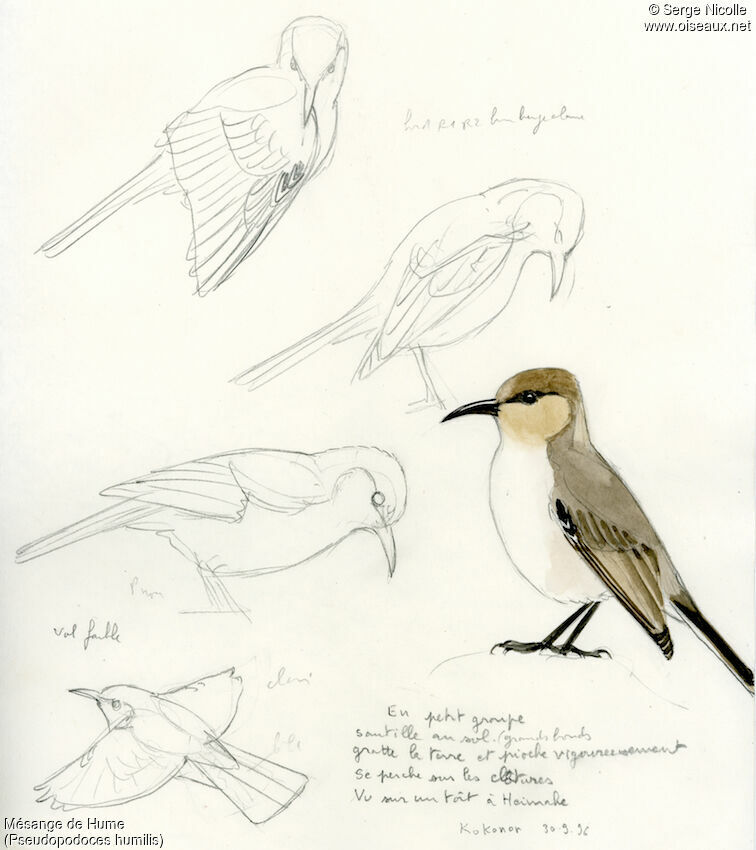 © Serge Nicolle
www.oiseaux.net
val faible
En petit groupe
sautille au sol. (grands bonds
gratte la terre et pioche vigoureusement
se perche sur les clôtures
Vu sur un tôit à Heimahe
Kokonor 30.9.96
Mésange de Hume
(Pseudopodoces humilis)